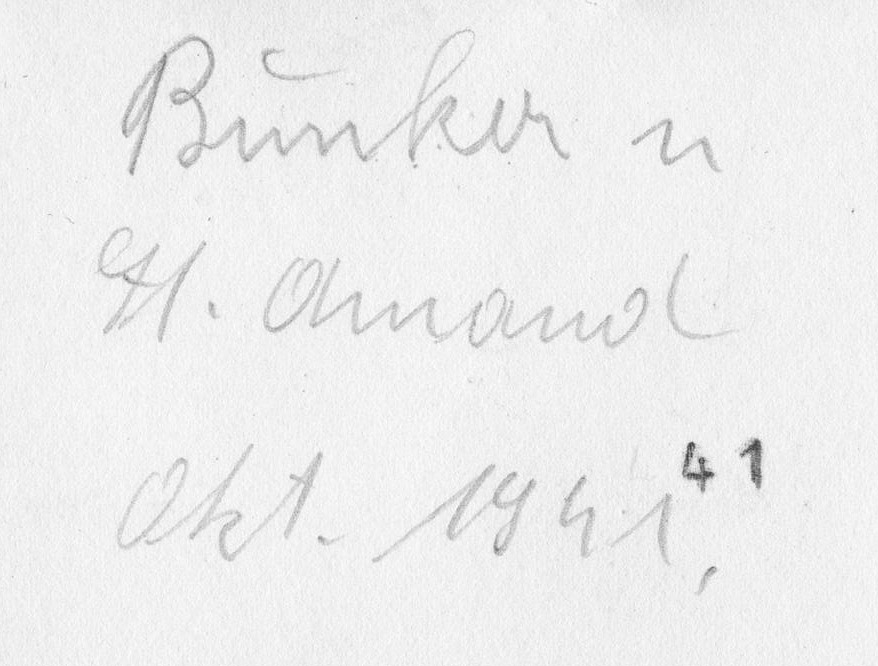 Bunker n
St. Amand
Okt. 1941,
41